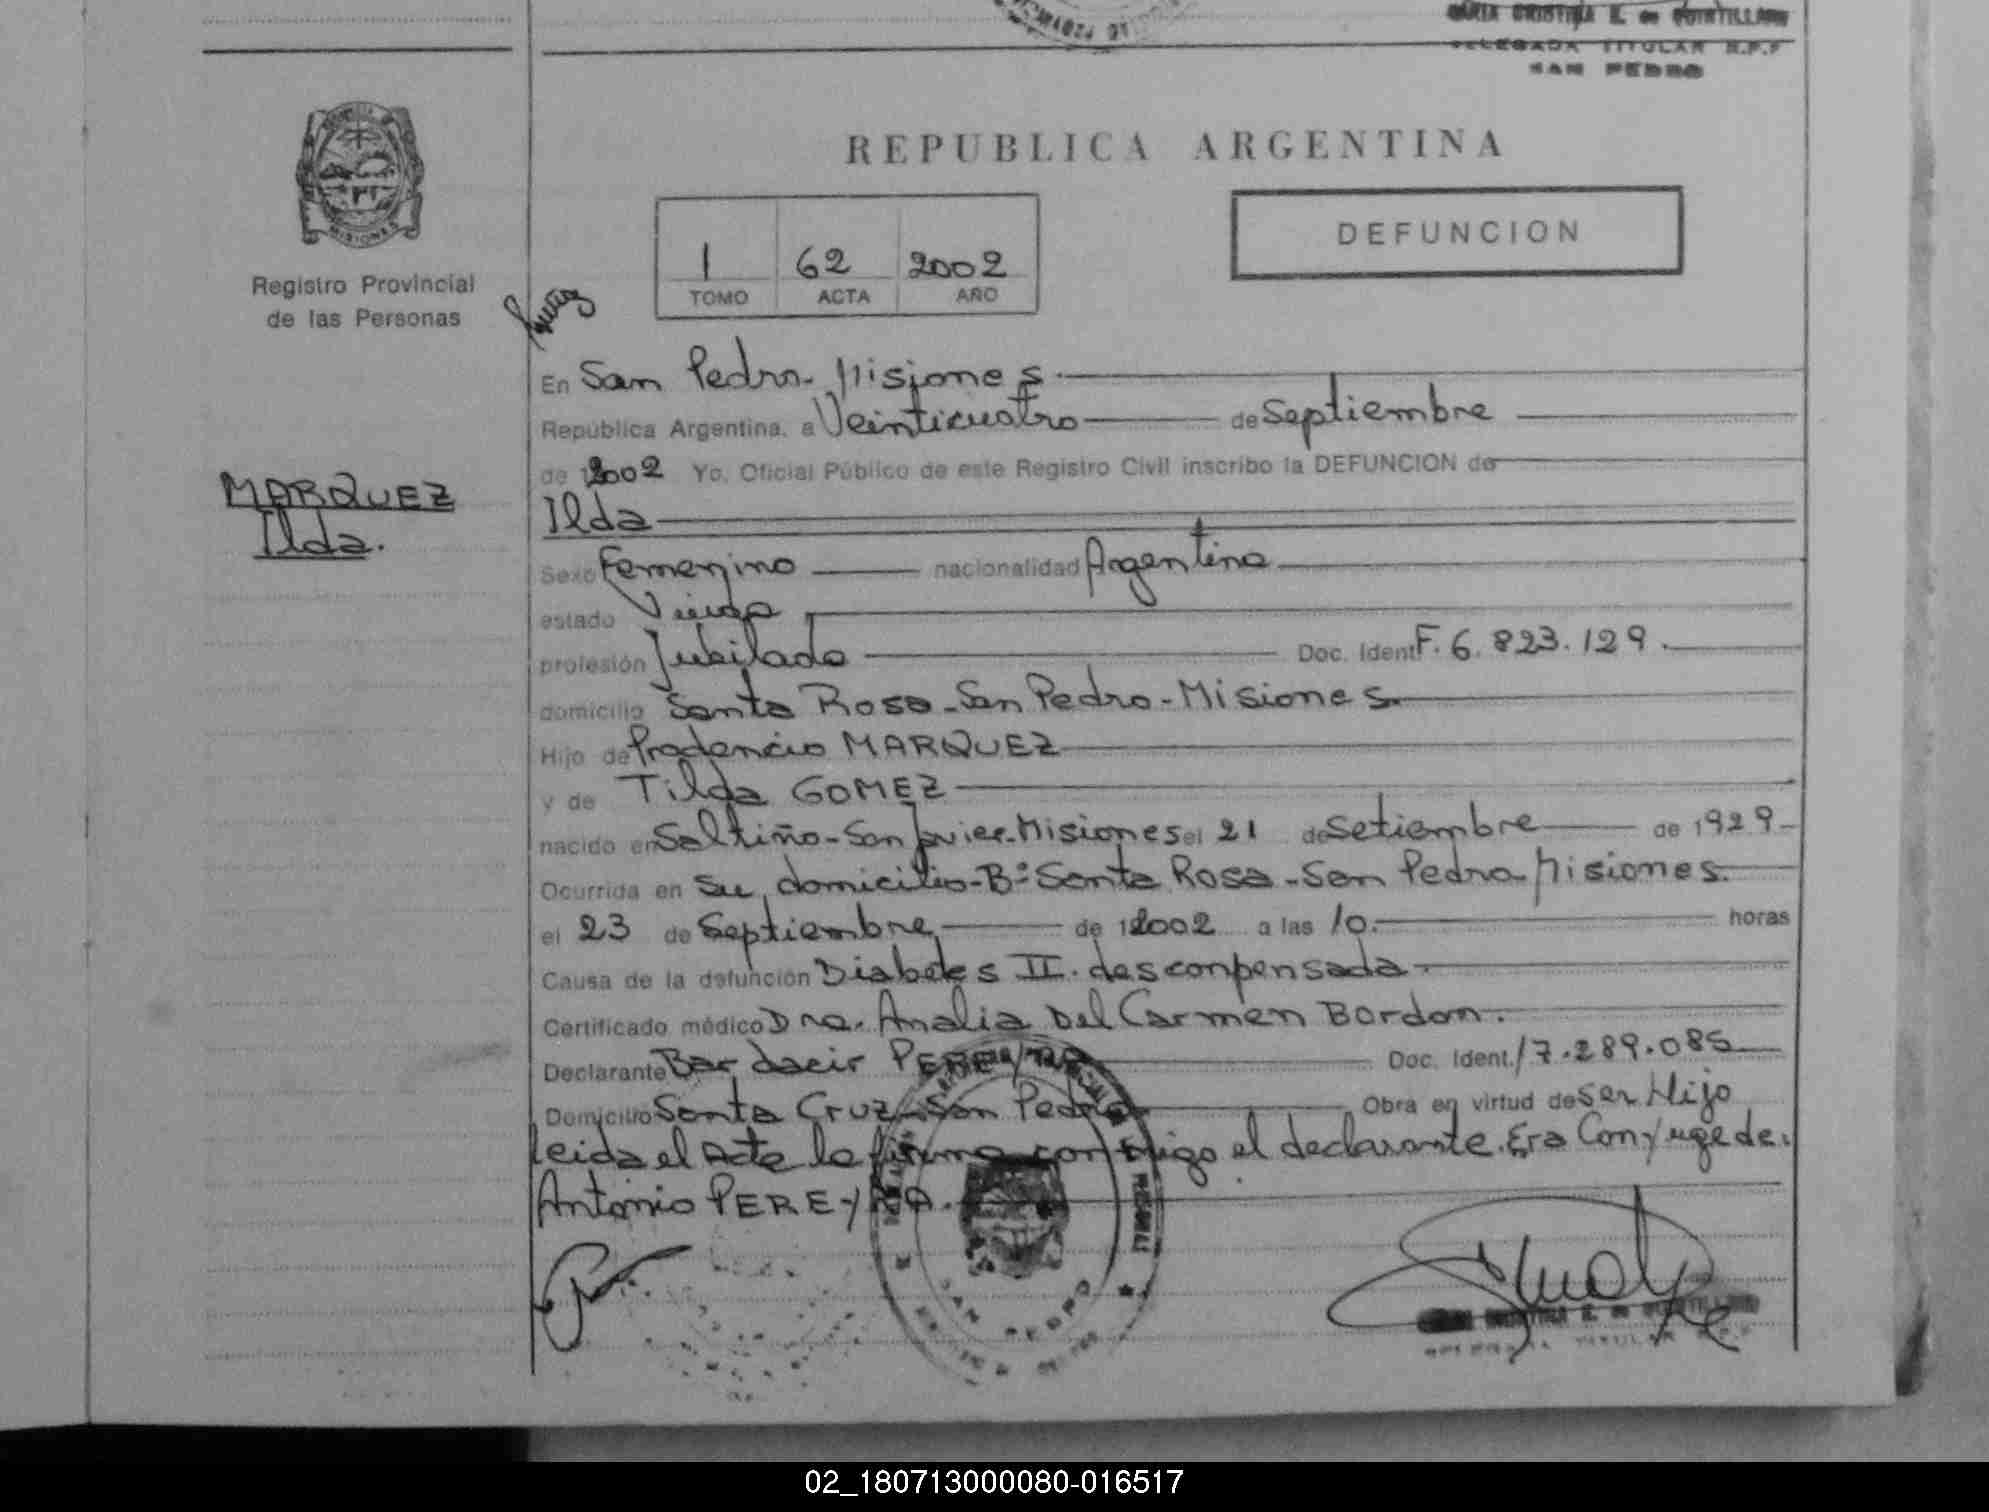 MARIA CRISTINA E. de QUINTILLAN
DELEGADA TITULAR R.P.P
SAN PEDRO
MISIONES
Registro Provincial
de las Personas
MARQUEZ
Ilda.
REPUBLICA ARGENTINA
1 62 2002
TOMO ACTA AÑO
DEFUNCION
En San Pedro - Misiones.
República Argentina, a Veinticuatro de Septiembre
de 2002 Yo, Oficial Público de este Registro Civil inscribo la DEFUNCION de
Ilda
Sexo Femenino nacionalidad Argentina
estado Viuda
profesión Jubilada Doc. Ident F. 6.823.129.
domicilio Santa Rosa - San Pedro - Misiones.
Hijo de Prodencio MARQUEZ
y de Tilda GOMEZ
nacido en Saltiño - San Javier - Misiones el 21 de Setiembre de 1929
Ocurrida en Su domicilio - Bº Santa Rosa - San Pedro Misiones.
el 23 de Septiembre de 2002 a las 10. horas
Causa de la defunción Diabetes II. desconpensada
Certificado médico Dra. Analia Del Carmen Bordon.
Declarante Bardacir PEREYRA Doc. Ident. 17.289.085
Domicilio Santa Cruz - San Pedro Obra en virtud de Ser Hijo
leida el Acta la firma conmigo el declarante. Era Conyuge de:
Antonio PEREYRA.
SAN PEDRO
02_180713000080-016517